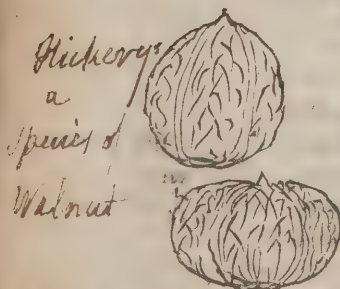 Hickery
a
species of
Walnut